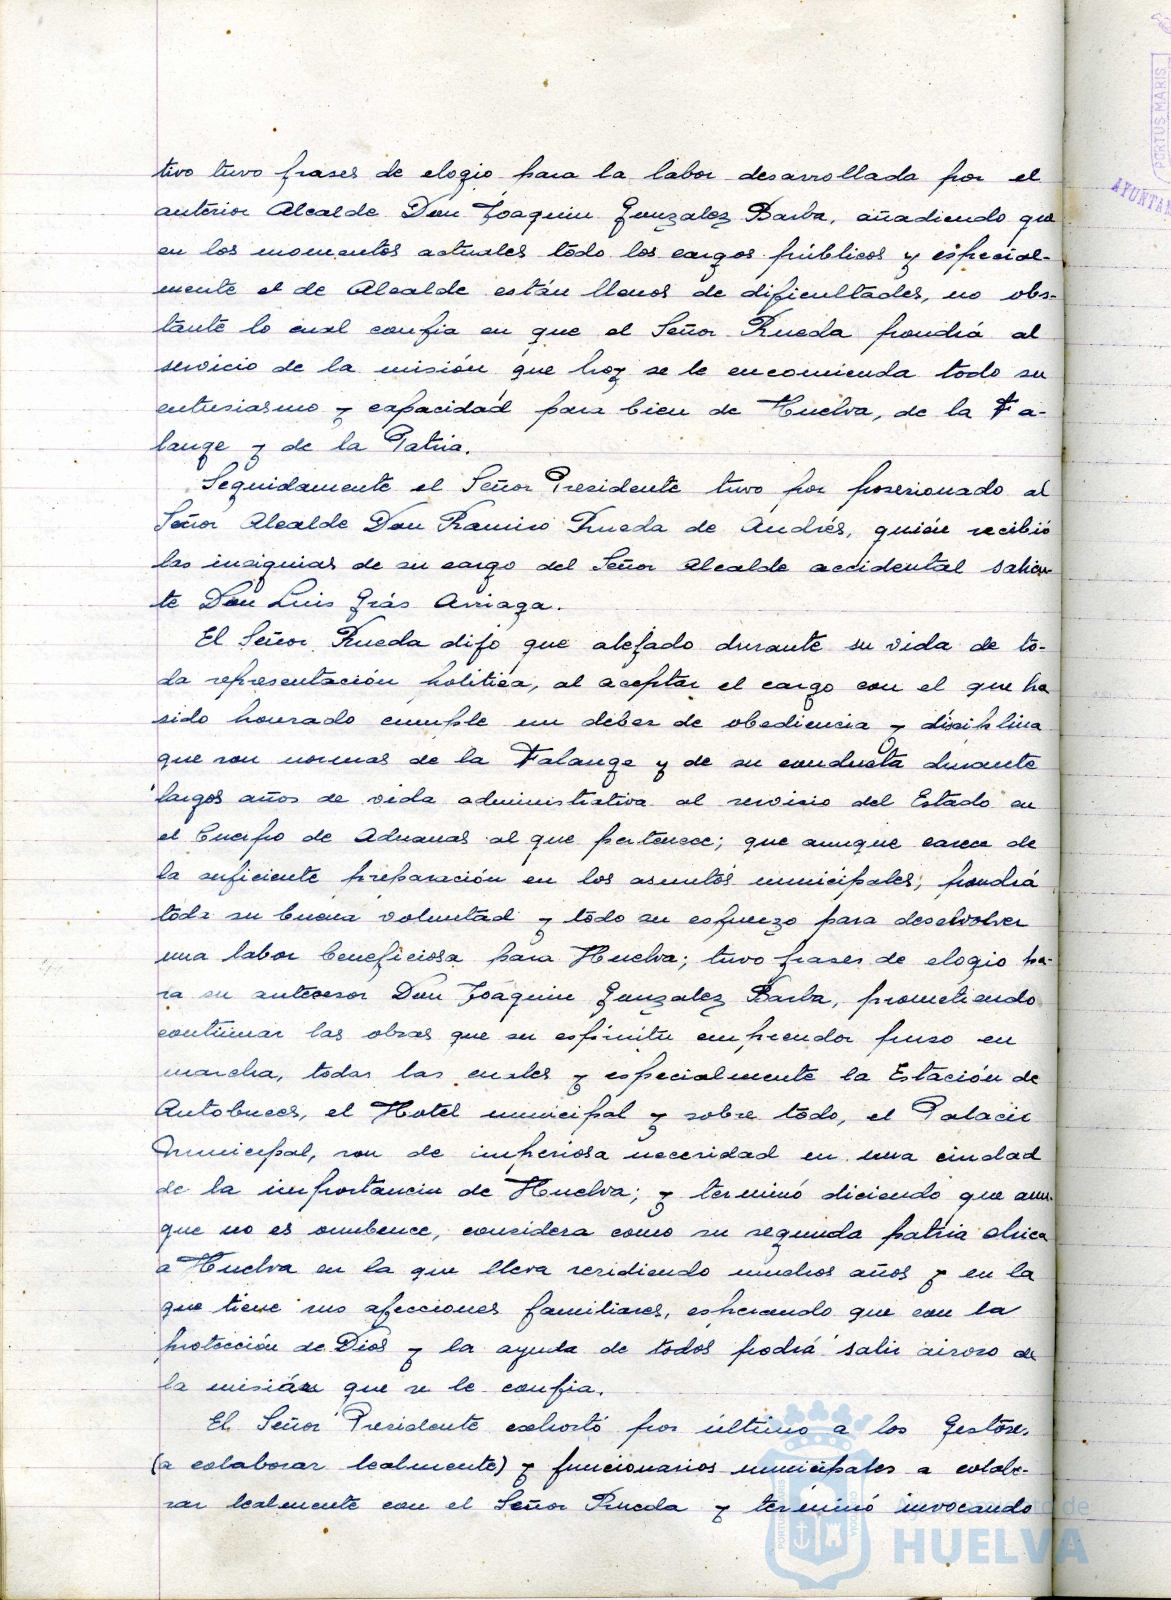 tivo tuvo frases de elogio para la labor desarrollada por el
anterior Alcalde Don Joaquin Gonzalez Barba, añadiendo que
en los momentos actuales todo los cargos públicos y especial-
mente el de Alcalde están llenos de dificultades, no obs-
tante lo cual confia en que el Señor Rueda pondrá al
servicio de la misión que hoy se le encomienda todo su
entusiasmo y capacidad para bien de Huelva, de la Fa-
lange y de la Patria.
Seguidamente el Señor Presidente tuvo por posesionado al
Señor Alcalde Don Ramiro Rueda de Andrés, quien recibió
las insignias de su cargo del Señor Alcalde accidental salien-
te Don Luis Grás Arriaga.
El Señor Rueda dijo que alejado durante su vida de to-
da representación politica, al aceptar el cargo con el que ha
sido honrado cumple un deber de obediencia y disciplina
que son normas de la Falange y de su conducta durante
largos años de vida administrativa al servicio del Estado en
el Cuerpo de Aduanas al que pertenece; que aunque carece de
la suficiente preparación en los asuntos municipales, pondrá
toda su buena voluntad y todo su esfuerzo para desolver
una labor beneficiosa para Huelva; tuvo frases de elogio pa-
ra su antecesor Don Joaquin Gonzalez Barba, prometiendo
continuar las obras que su espíritu emprendor puso en
marcha, todas las cuales y especialmente la Estación de
Autobuses, el Hotel municipal y sobre todo, el Palacio
Municipal, son de imperiosa necesidad en una ciudad
de la importancia de Huelva; y terminó diciendo que aun-
que no es onubence, considera como su segunda patria chica
a Huelva en la que lleva residiendo muchos años y en la
que tiene sus afecciones familiares, esperando que con la
protección de Dios y la ayuda de todos podrá salir airoso de
la misión que se le confia.
El Señor Presidente exhortó por último a los Gestores
(a colaborar lealmente) y funcionarios municipales a colabo-
rar lealmente con el Señor Rueda y terminó invocando
Ayuntamiento de
HUELVA
PORTUS MARIS
AYUNTAM